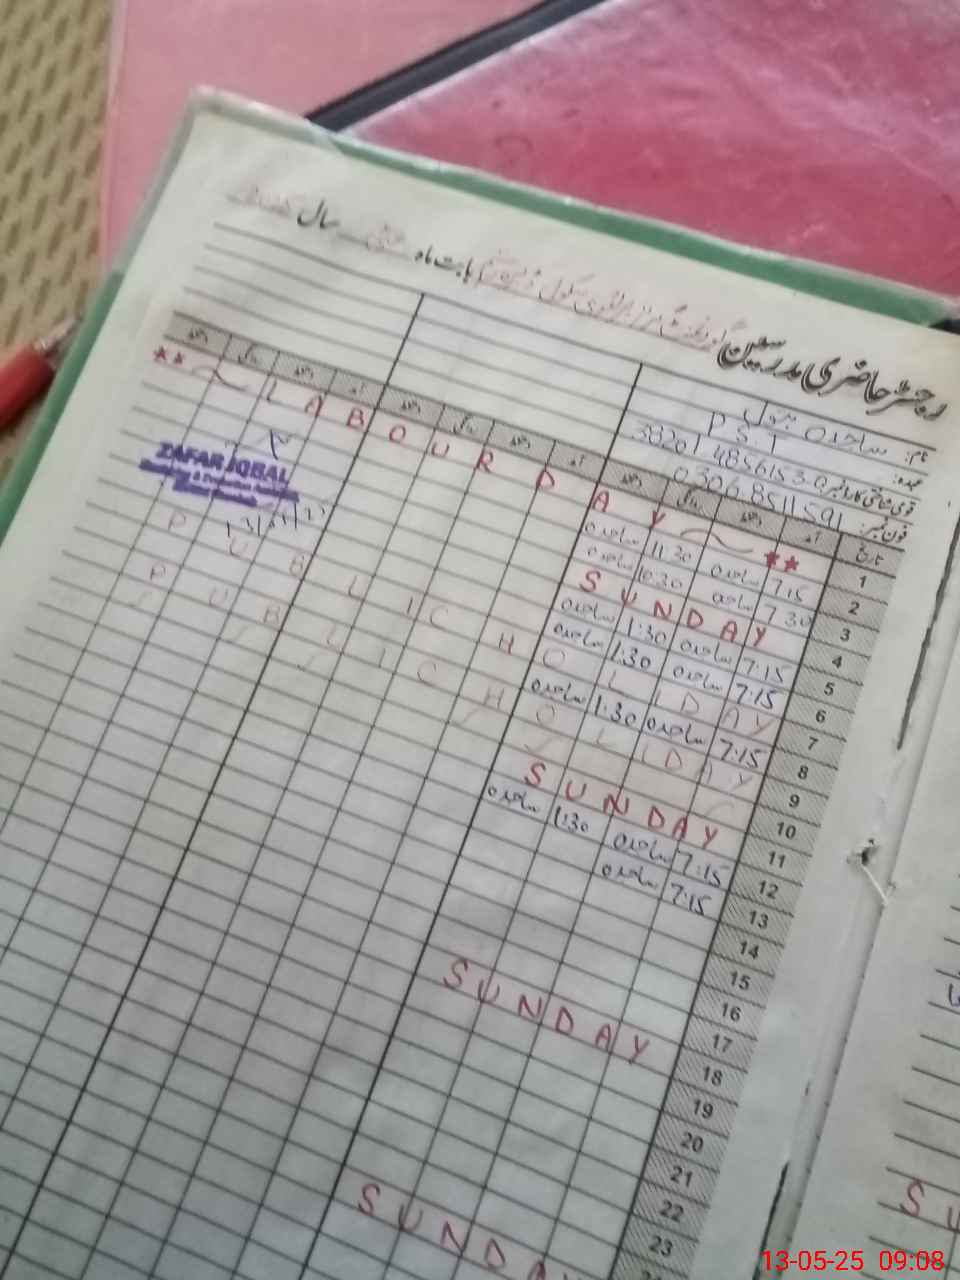 رجسٹر حاضری مدرسین گورنمنٹ گرلز ایلیمنٹری سکول بابت ماہ مئی سال
نام: ساجدہ بتول
عہدہ: P S T
قومی شناختی کارڈ نمبر 38201 4856153-0
فون نمبر: 0306 8511591
تاریخ آمد دستخط روانگی دستخط آمد دستخط روانگی دستخط آمد دستخط روانگی دستخط
1 ** ~ LABOUR DAY ~ **
2 7:15 ساجدہ 11:30 ساجدہ
3 7 30 ساجدہ 10:30 ساجدہ
4 SUNDAY
5 7:15 ساجدہ 1:30 ساجدہ
6 7:15 ساجدہ 1:30 ساجدہ
7 PUBLIC HOLIDAY
8 7:15 ساجدہ 1:30 ساجدہ
9 PUBLIC HOLIDAY
10
11 SUNDAY
12 7:15 ساجدہ 1:30 ساجدہ
13 7:15 ساجدہ
14
15
16
17
18 SUNDAY
19
20
21
22
23
ZAFAR IQBAL
SUNDA
S U
13-05-25 09:08